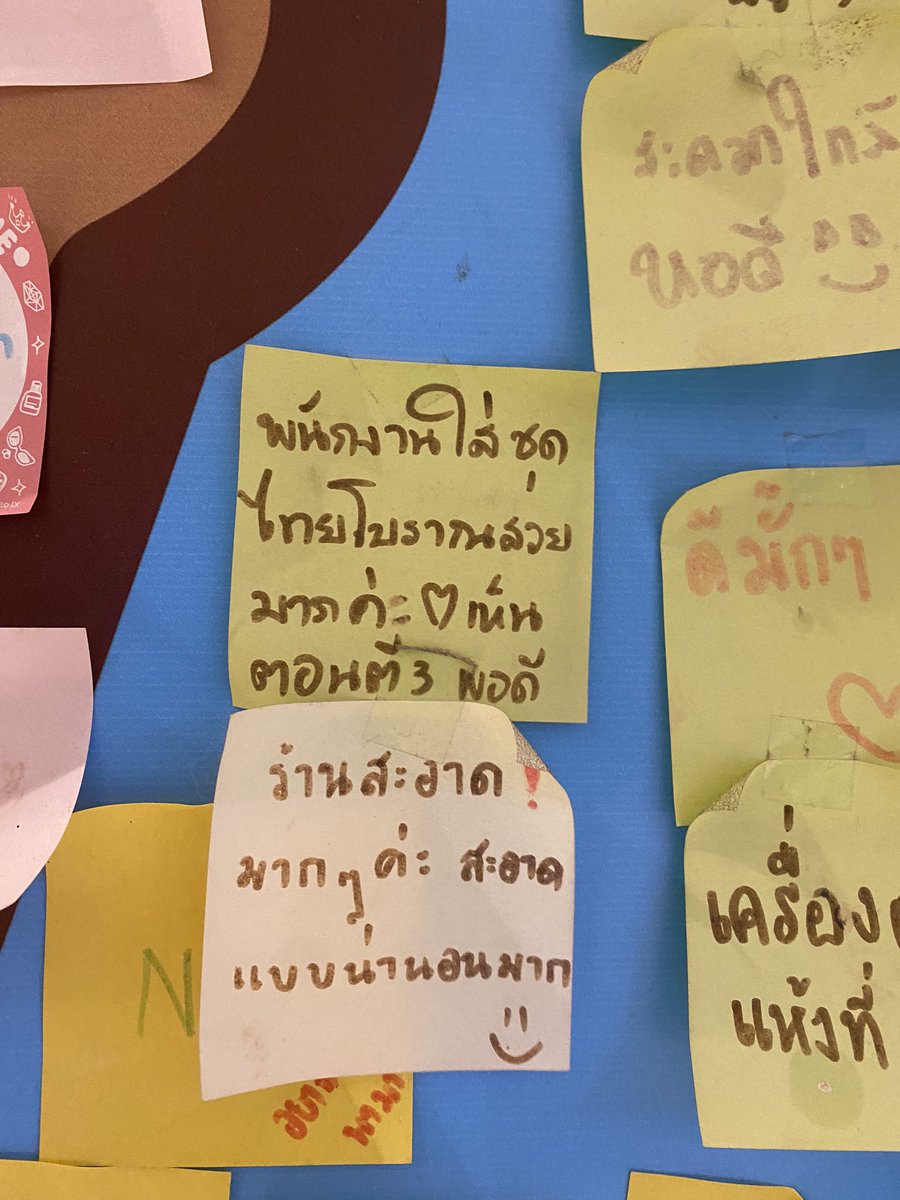 ระดมกใกล้
หอดี
พนักงานใส่ชุด
ไทยโบราณสวย
มากค่ะ ♡ เห็น
ตอนตี 3 พอดี
ร้านสะอาด!
มากๆค่ะ สะอาด
แบบน่านอนมาก
ดีมั้กๆ
เครื่อง
แห้งที่
N